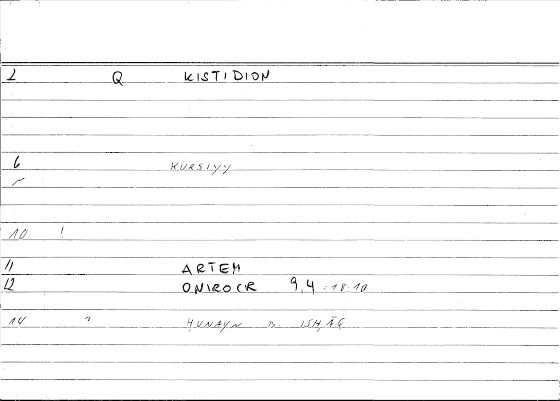 2 Q KISTIDION
6 KURSIYY
10 !
11 ARTEM
12 ONIROCR 9,4 = 18.10
14 ? ḤUNAYN B. ISḤĀQ